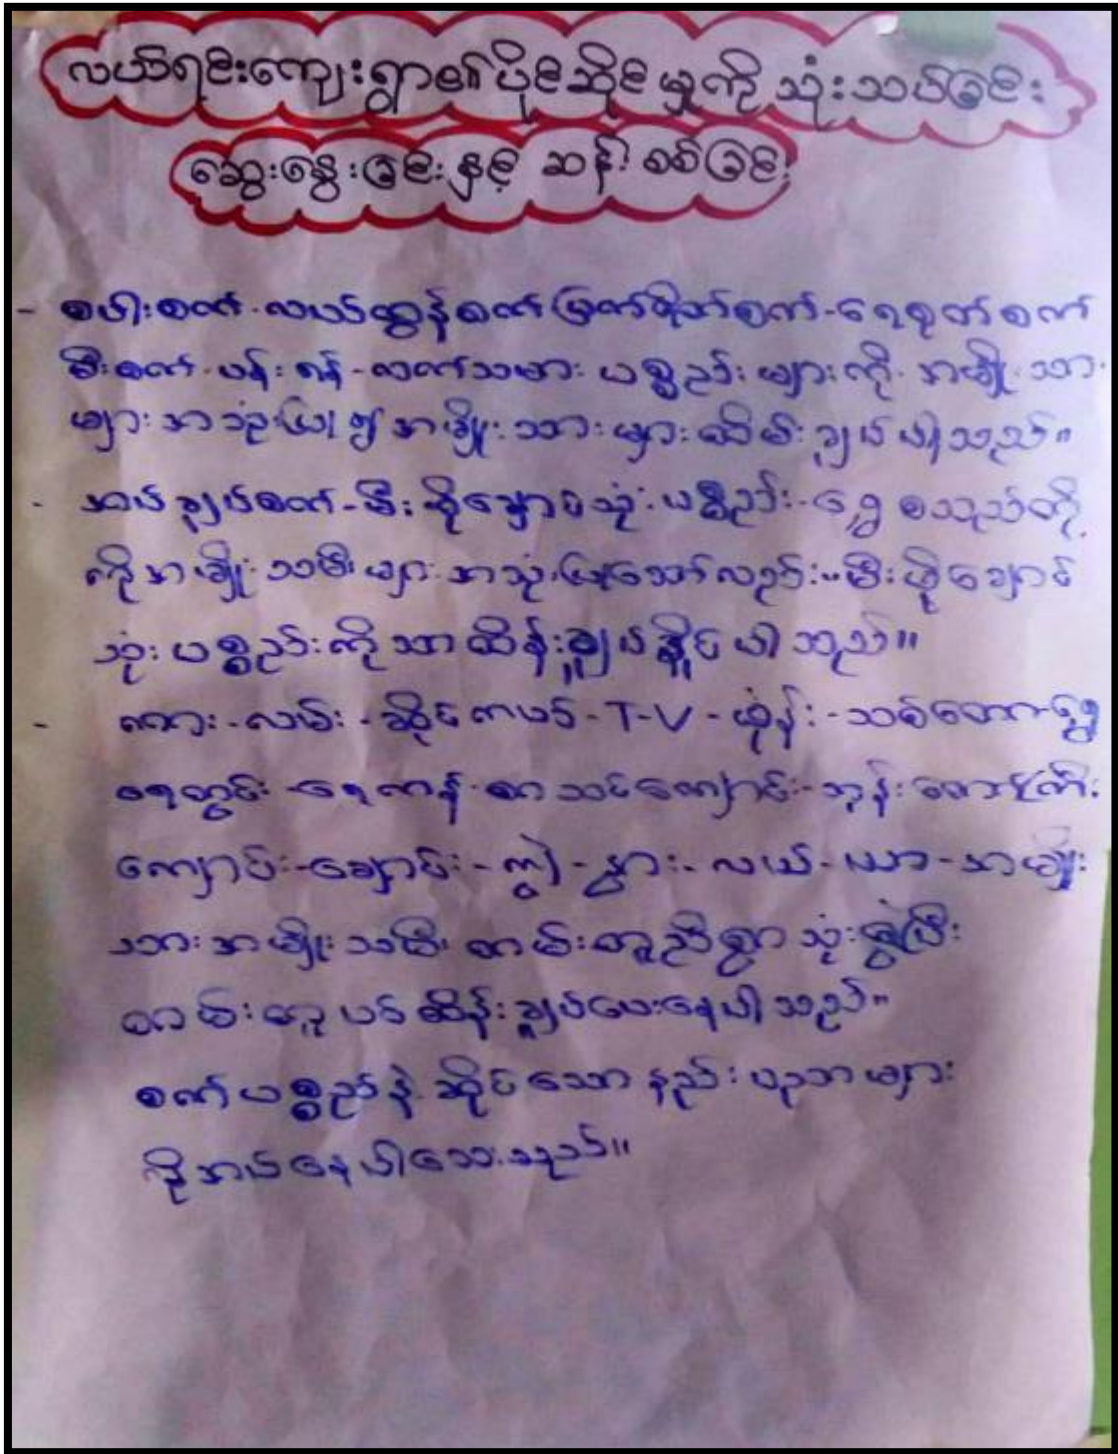 လယ်ရင်းကျေးရွာ၏ပိုင်ဆိုင်မှုကို သုံးသပ်ခြင်း
ဆွေးနွေးခြင်းနှင့် ဆန်းစစ်ခြင်း
- စပါးစက်-လယ်ထွန်စက်မြက်ရိတ်စက်-ရေစုတ်စက်
မီးစက်-ပန်းရန်-လက်သမားပစ္စည်းများကို အမျိုးသား
များအသုံးပြု၍အမျိုးသားများထိမ်းချုပ်ပါသည်။
- အပ်ချုပ်စက်-မီးဖိုချောင်သုံးပစ္စည်း-ရွှေစသည်တို့
ကိုအမျိုးသမီးများအသုံးပြုသော်လည်း မီးဖိုချောင်
သုံးပစ္စည်းကိုသာထိန်းချုပ်နိုင်ပါသည်။
- ကား-လမ်း-ဆိုင်ကယ်-T-V-ဖုန်း-သစ်တော-ရွှေ
ရေတွင်း-ရေကန်-စာသင်ကျောင်း-ဘုန်းတော်ကြီး
ကျောင်း-ချောင်း-ကျွဲ-နွား-လယ်-ယာ-အမျိုး
သားအမျိုးသမီးတန်းတူညီစွာသုံးစွဲပြီး
တန်းတူပင်ထိန်းချုပ်ပေးနေပါသည်။
စက်ပစ္စည်းနဲ့ဆိုင်သောနည်းပညာများ
လိုအပ်နေပါသေးသည်။